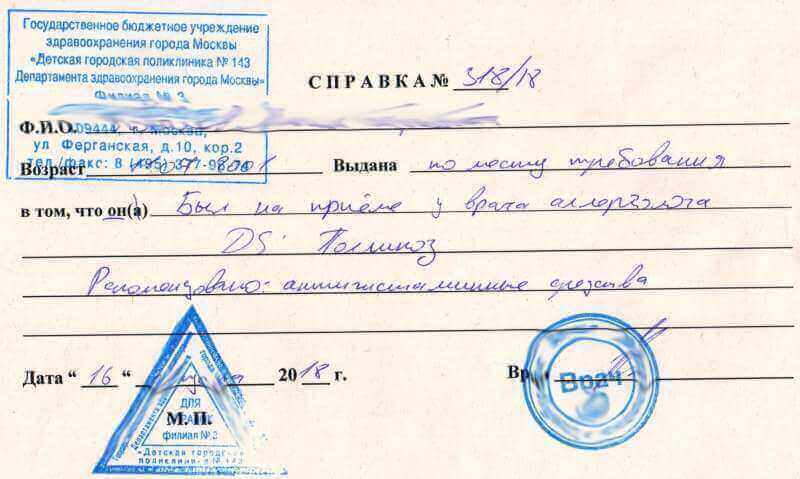 Государственное бюджетное учреждение
здравоохранения города Москвы
«Детская городская поликлиника № 143
Департамента здравоохранения города Москвы»
Филиал № 3
СПРАВКА № 318/18
Ф.И.О.
109444, г. Москва,
ул Ферганская, д.10, кор.2
тел./факс: 8 (495) 377-
Возраст Выдана по месту требования
в том, что он(а) Был на приёме у врача аллерголога
DS: Поллиноз
Рекомендовано: антигистаминные средства
Дата “ 16 “ 2018 г. Врач
Врач
ДЛЯ
СПРАВОК
М. П.
филиал № 3
«Детская городская
поликлиника № 143